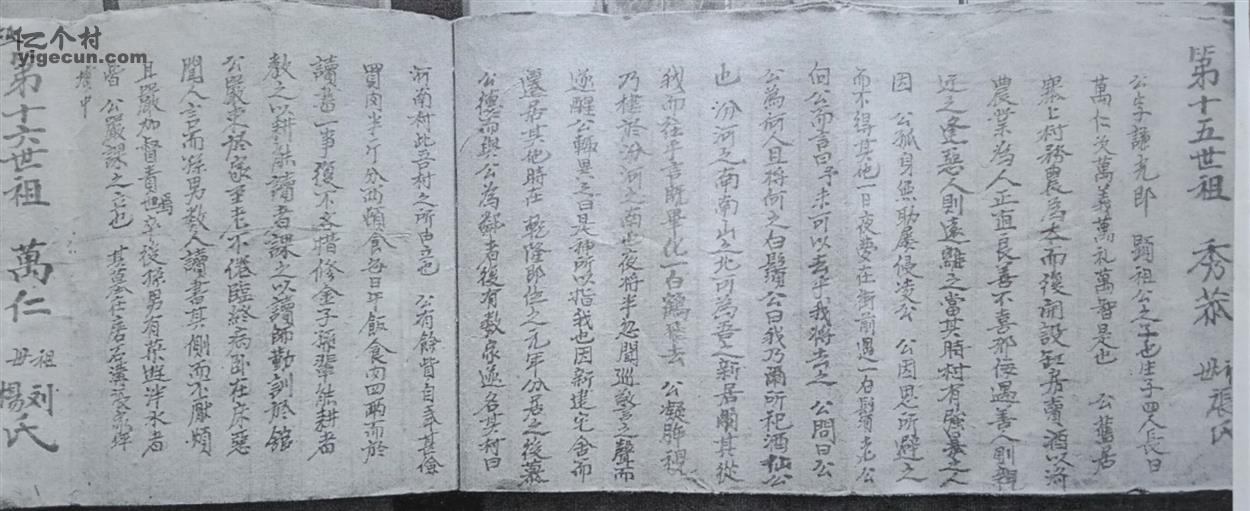 亿个村
yigecun.com
第十五世祖 秀恭 祖母張氏
公字謙光郎 顕祖公之子也生子四人長曰
萬仁次萬義萬礼萬智是也 公舊居
寨上村務農為本而後開設缸房賣酒以濟
農業為人正直良善不喜邪佞遇善人則親
近之逢惡人則遠離之當其時村有強暴之人
因 公孤身無助屢侵凌公 公因思所避之
而不得其他一日夜夢在街前遇一白鬚老公
向公而言曰予未可以去乎我將去之 公問曰公
公為何人且將何之白鬚公曰我乃爾所祀酒仙公
也 汾河之南南山之北可為吾之新居爾其從
我而往乎言既畢化一白鶴飛去 公凝眸視
乃棲於汾河之南也夜將半忽聞巡警之聲而
遂醒公輒異之曰是神所以指我也因新建宅舍而
遷居其地時在乾隆即位之元年分居之後慕
公德而與公為鄰者後有數家遂名其村曰
河南村此吾村之所由立也 公有餘貲自奉甚儉
買肉半斤分兩頓食每日午飯食肉四兩而於
讀書一事復不吝惜修金子孫輩能耕者
教之以耕能讀者課之以讀師勤到於館
公嚴束於家至老不倦臨終病臥在床惡
聞人言而孫男教人讀書其側而不厭煩
且嚴加督責焉也卒後孫男有遊泮水者
皆 公嚴課之也 其墓在居石溝
塋中
第十六世祖 萬仁 祖母刘楊氏